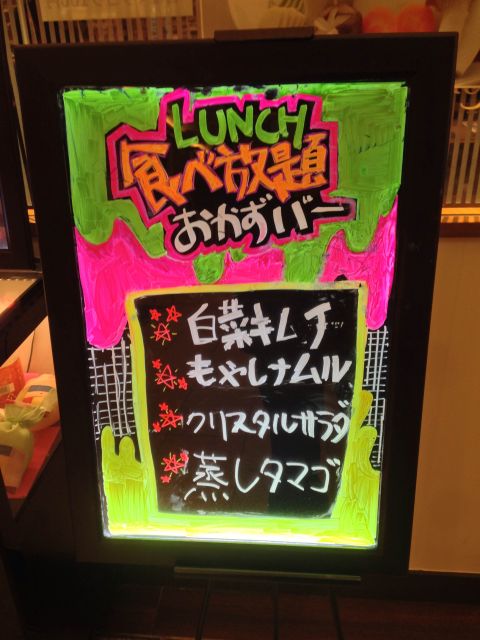 LUNCH
食べ放題
おかずバー
白菜キムチ
もやしナムル
クリスタルサラダ
蒸しタマゴ